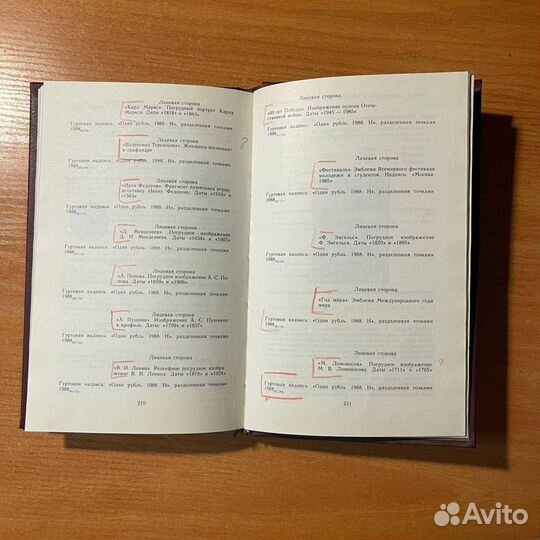 Лицевая сторона
«Карл Маркс». Погрудный портрет Карла
Маркса. Даты «1818» и «1883»
Гуртовая надпись: «Один рубль. 1988. Н», разделенная точками
1988
Лицевая сторона
«Валентина Терешкова». Женщина-космонавт
в скафандре
Гуртовая надпись: «Один рубль. 1988. Н», разделенная точками
1988
Лицевая сторона
«Иван Федоров». Фрагмент памятника перво-
печатнику Ивану Федорову. Даты «1510» и
«1583»
Гуртовая надпись: «Один рубль. 1988. Н», разделенная точками
1988
Лицевая сторона
«Д. Менделеев». Погрудное изображение
Д. И. Менделеева. Даты «1834» и «1907»
Гуртовая надпись: «Один рубль. 1988. Н», разделенная точками
1988
Лицевая сторона
«А. Попов». Погрудное изображение А. С. По-
пова. Даты «1859» и «1906»
Гуртовая надпись: «Один рубль. 1988. Н», разделенная точками
1988
Лицевая сторона
«А. Пушкин». Изображение А. С. Пушкина
в профиль. Даты: «1799» и «1837»
Гуртовая надпись: «Один рубль. 1988. Н», разделенная точками
1988
Лицевая сторона
«В. И. Ленин». Рельефное погрудное изобра-
жение В. И. Ленина. Даты «1870» и «1924»
Гуртовая надпись: «Один рубль. 1988. Н», разделенная точками
1988
210
?
Лицевая сторона
«40 лет Победы». Изображение ордена Отече-
ственной войны. Даты «1945 — 1985»
Гуртовая надпись: «Один рубль. 1988. Н», разделенная точками
1988
Лицевая сторона
«Фестиваль». Эмблема Всемирного фестиваля
молодежи и студентов. Надпись: «Москва.
1985»
Гуртовая надпись: «Один рубль. 1988. Н», разделенная точками
1988
Лицевая сторона
«Ф. Энгельс». Погрудное изображение
Ф. Энгельса. Даты «1820» и «1895»
Гуртовая надпись: «Один рубль. 1988. Н», разделенная точками
1988
Лицевая сторона
«Год мира». Эмблема Международного года
мира
Гуртовая надпись: «Один рубль. 1988. Н», разделенная точками
1988
Лицевая сторона
«М. Ломоносов». Погрудное изображение
М. В. Ломоносова. Даты «1711» и «1765»
Гуртовая надпись: «Один рубль. 1988. Н», разделенная точками
1988
211
Avito